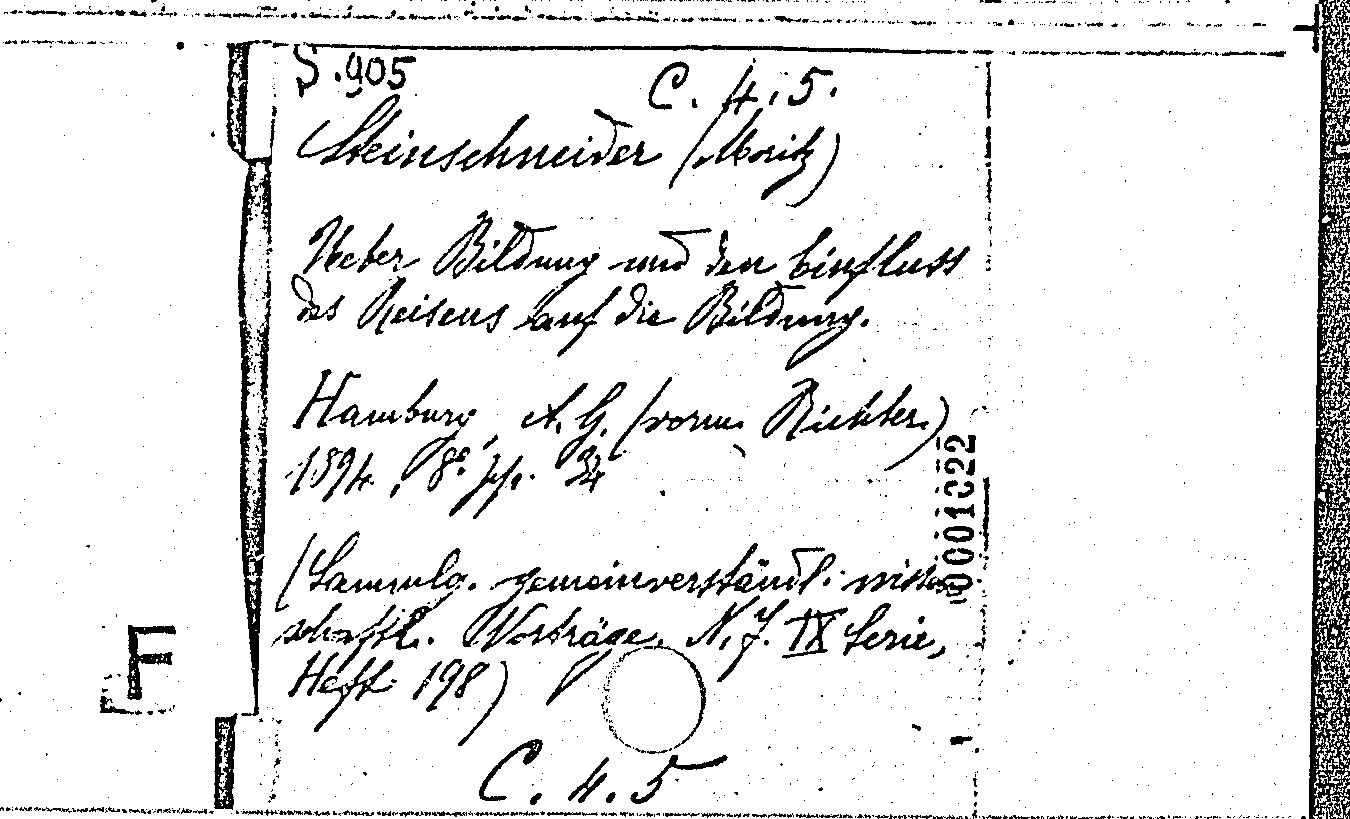 S.905
C. 4. 5.
Steinschneider (Moritz)
Ueber Bildung und den Einfluss
des Reisens auf die Bildung.
Hamburg, A. G. (vorm. Richter)
1894. 8º. pp. 34
(Sammlg. gemeinverständl. wissen
schaftl. Vorträge, N. F. IX Serie,
Heft 198)
C. 4. 5
F
0001022